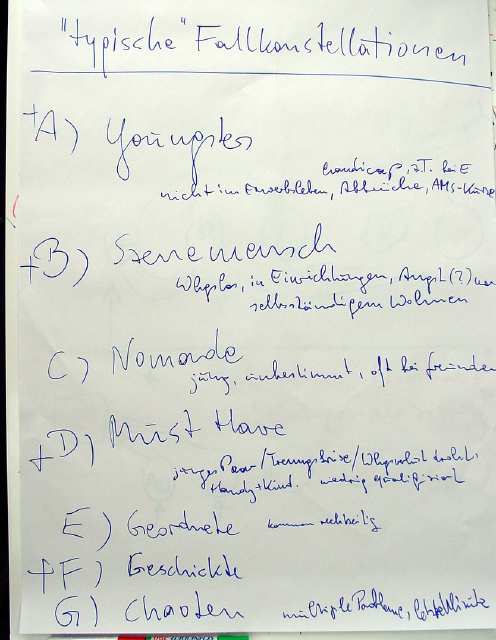 "typische" Fallkonstellationen
+A) Youngster
Handicap, z.T. bei E
nicht im Erwerbsleben, Abbrüche, AMS-Kurse
+B) Szenemensch
Whglos, in Einrichtungen, Angst (?) vor
selbständigem Wohnen
C) Nomade
jung, unbestimmt, oft bei Freunden
+D) Must Have
junges Paar/Trennungskrise/Whgsverlust droht.
Handy+Kind. niedrig qualifiziert
E) Geordnete kommen rechtzeitig
+F) Geschickte
G) Chaoten multiple Probleme,